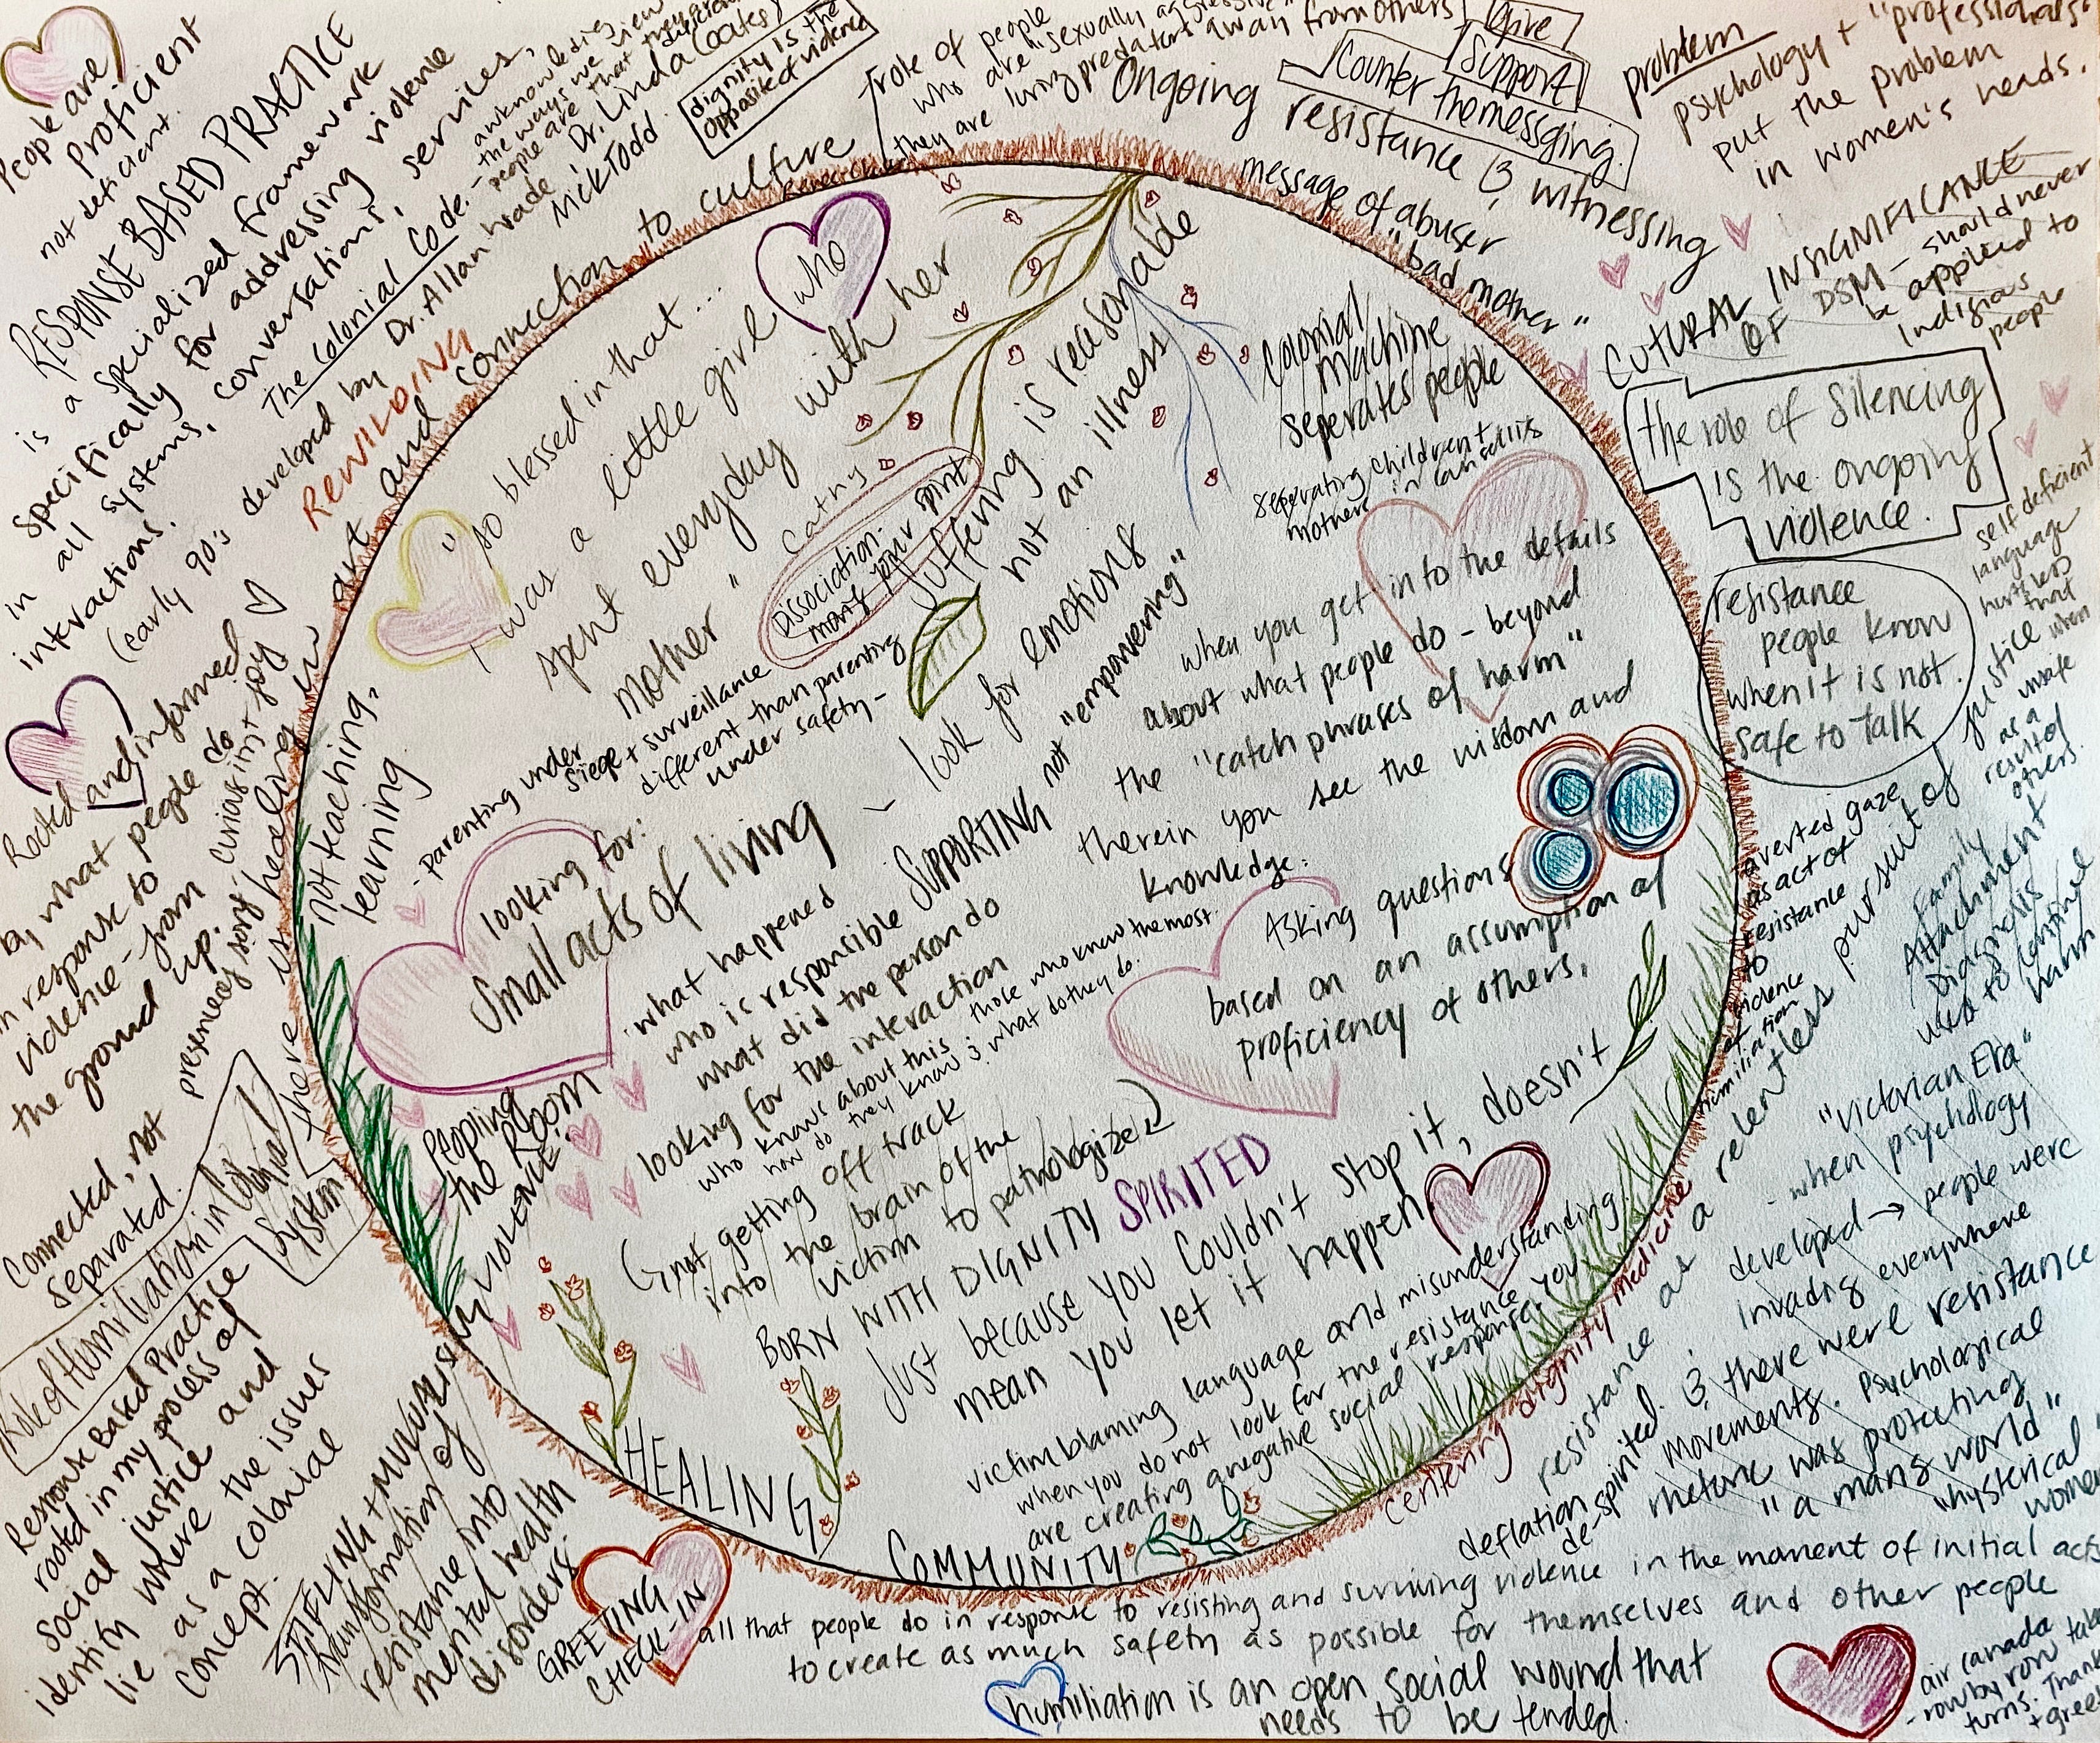 People are
proficient
not deficient.
RESPONSE BASED PRACTICE
is a specialized framework
specifically for addressing violence
in all systems, conversations, services,
interactions.
The Colonial Code.
awknowledging
the ways we view
people are that
(early 90's developed by Dr. Allan Wade, Dr. Linda Coates,
Nick Todd.
dignity is the
opposite of violence
REWILDING
art and connection to culture
role of people
who are "sexually aggressive"
they are luring predators away from others
Ongoing
resistance & witnessing
Give
Support
Counter the messging.
message of abuser
"bad mother"
problem
psychology + "professionals"
put the problem
in women's heads.
CUTURAL INSIGNIFICANCE
OF DSM - should never
be applied to
Indignous
people
the role of silencing
is the ongoing
violence.
resistance
people know
when it is not
safe to talk
self deficient
language
hurts less
that
when
unsafe
as a
result of
others.
averted gaze
as act of
resistance
to
violence
humiliation
Family
Attachment
Diagnosis
used to continue
harm
resistance as a relentless pursuit of justice
"Victorian Era"
- when psychology
developed → people were
invading everywhere
& there were resistance
movements. Psychological
rhetoric was protecting
"a mans world"
"hysterical
women
deflation
de-spirited.
centering dignity medicine
"so blessed in that...
I was a little girl who
spent everyday with her
mother" Cathy
Dissociation-
many your spirit
suffering is reasonable
not an illness
Colonial
machine
seperates people
seperating children +
mothers in
- look for emotions
not "empowering"
- Parenting under
siege + surveillance
different than parenting
under safety -
when you get into the details
about what people do - beyond
the "catch phrases of harm"
therein you see the wisdom and
knowledge.
not teaching,
learning
looking for:
Small acts of living
SUPPORTING
· what happened
who is responsible
what did the person do
looking for the interaction
who knows about this
those who know the most.
how do they know & what do they do.
(not getting off track
into the brain of the
victim to pathologize)
Asking questions
based on an assumption of
proficiency of others.
BORN WITH DIGNITY SPIRITED
Just because you couldn't stop it, doesn't
mean you let it happen.
victim blaming language and misunderstanding.
when you do not look for the resistance, you
are creating a negative social response
Peopling
the Room
HEALING
COMMUNITY
Rooted and informed
by what people do
in response to
violence - from
the ground up.
curiousity joy
Connected, not
separated.
Role of Humiliation in Colonial
System
Response Based Practice
rooted in my process of
social justice and
identity where the issues
lie as a colonial
concept.
transformation of
resistance into
mental health
disorders.
GREETING
CHECK-IN
all that people do in response to resisting and surviving violence in the moment of initial
to create as much safety as possible for themselves and other people
humiliation is an open social wound that
needs to be tended.
air canada
- row by row
turns. Thank
+ greet